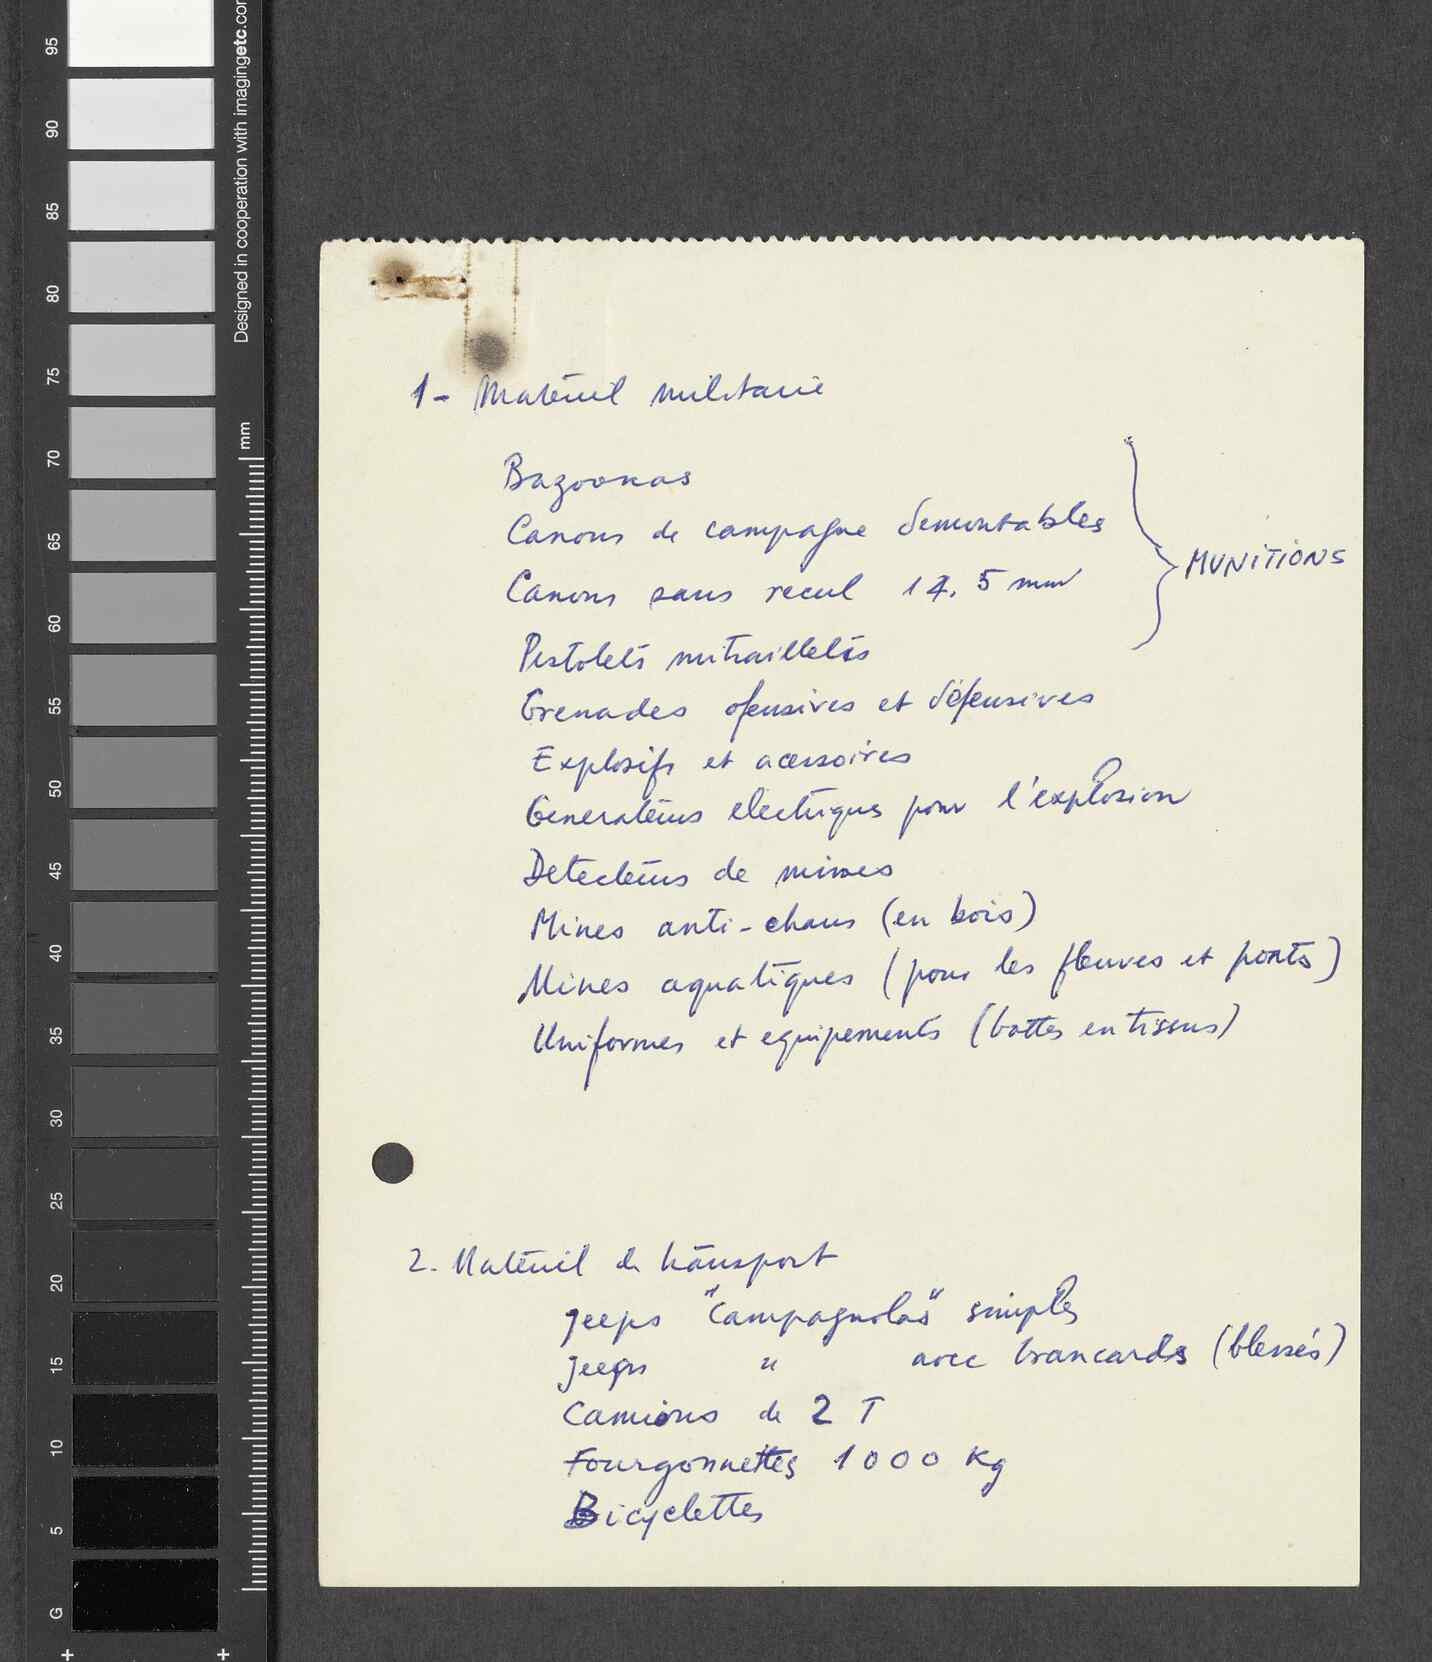 95
90
85
80
75
70
65
60
55
50
45
40
35
30
25
20
15
10
5
G
Designed in cooperation with imagingetc.com
mm
1- Matériel militaire
Bazookas
Canons de campagne demontables
Canons sans recul 14.5 mm
MUNITIONS
Pistolets mitrailletes
Grenades ofensives et défensives
Explosifs et acessoires
Generateurs electriques pour l'explosion
Detecteurs de mines
Mines anti-chars (en bois)
Mines aquatiques (pour les fleuves et ponts)
Uniformes et equipements (bottes en tissus)
2. Matériel de transport
jeeps "Campagnolas" simples
jeeps " avec brancards (blessés)
Camions de 2 T
Fourgonnettes 1000 Kg
Bicyclettes